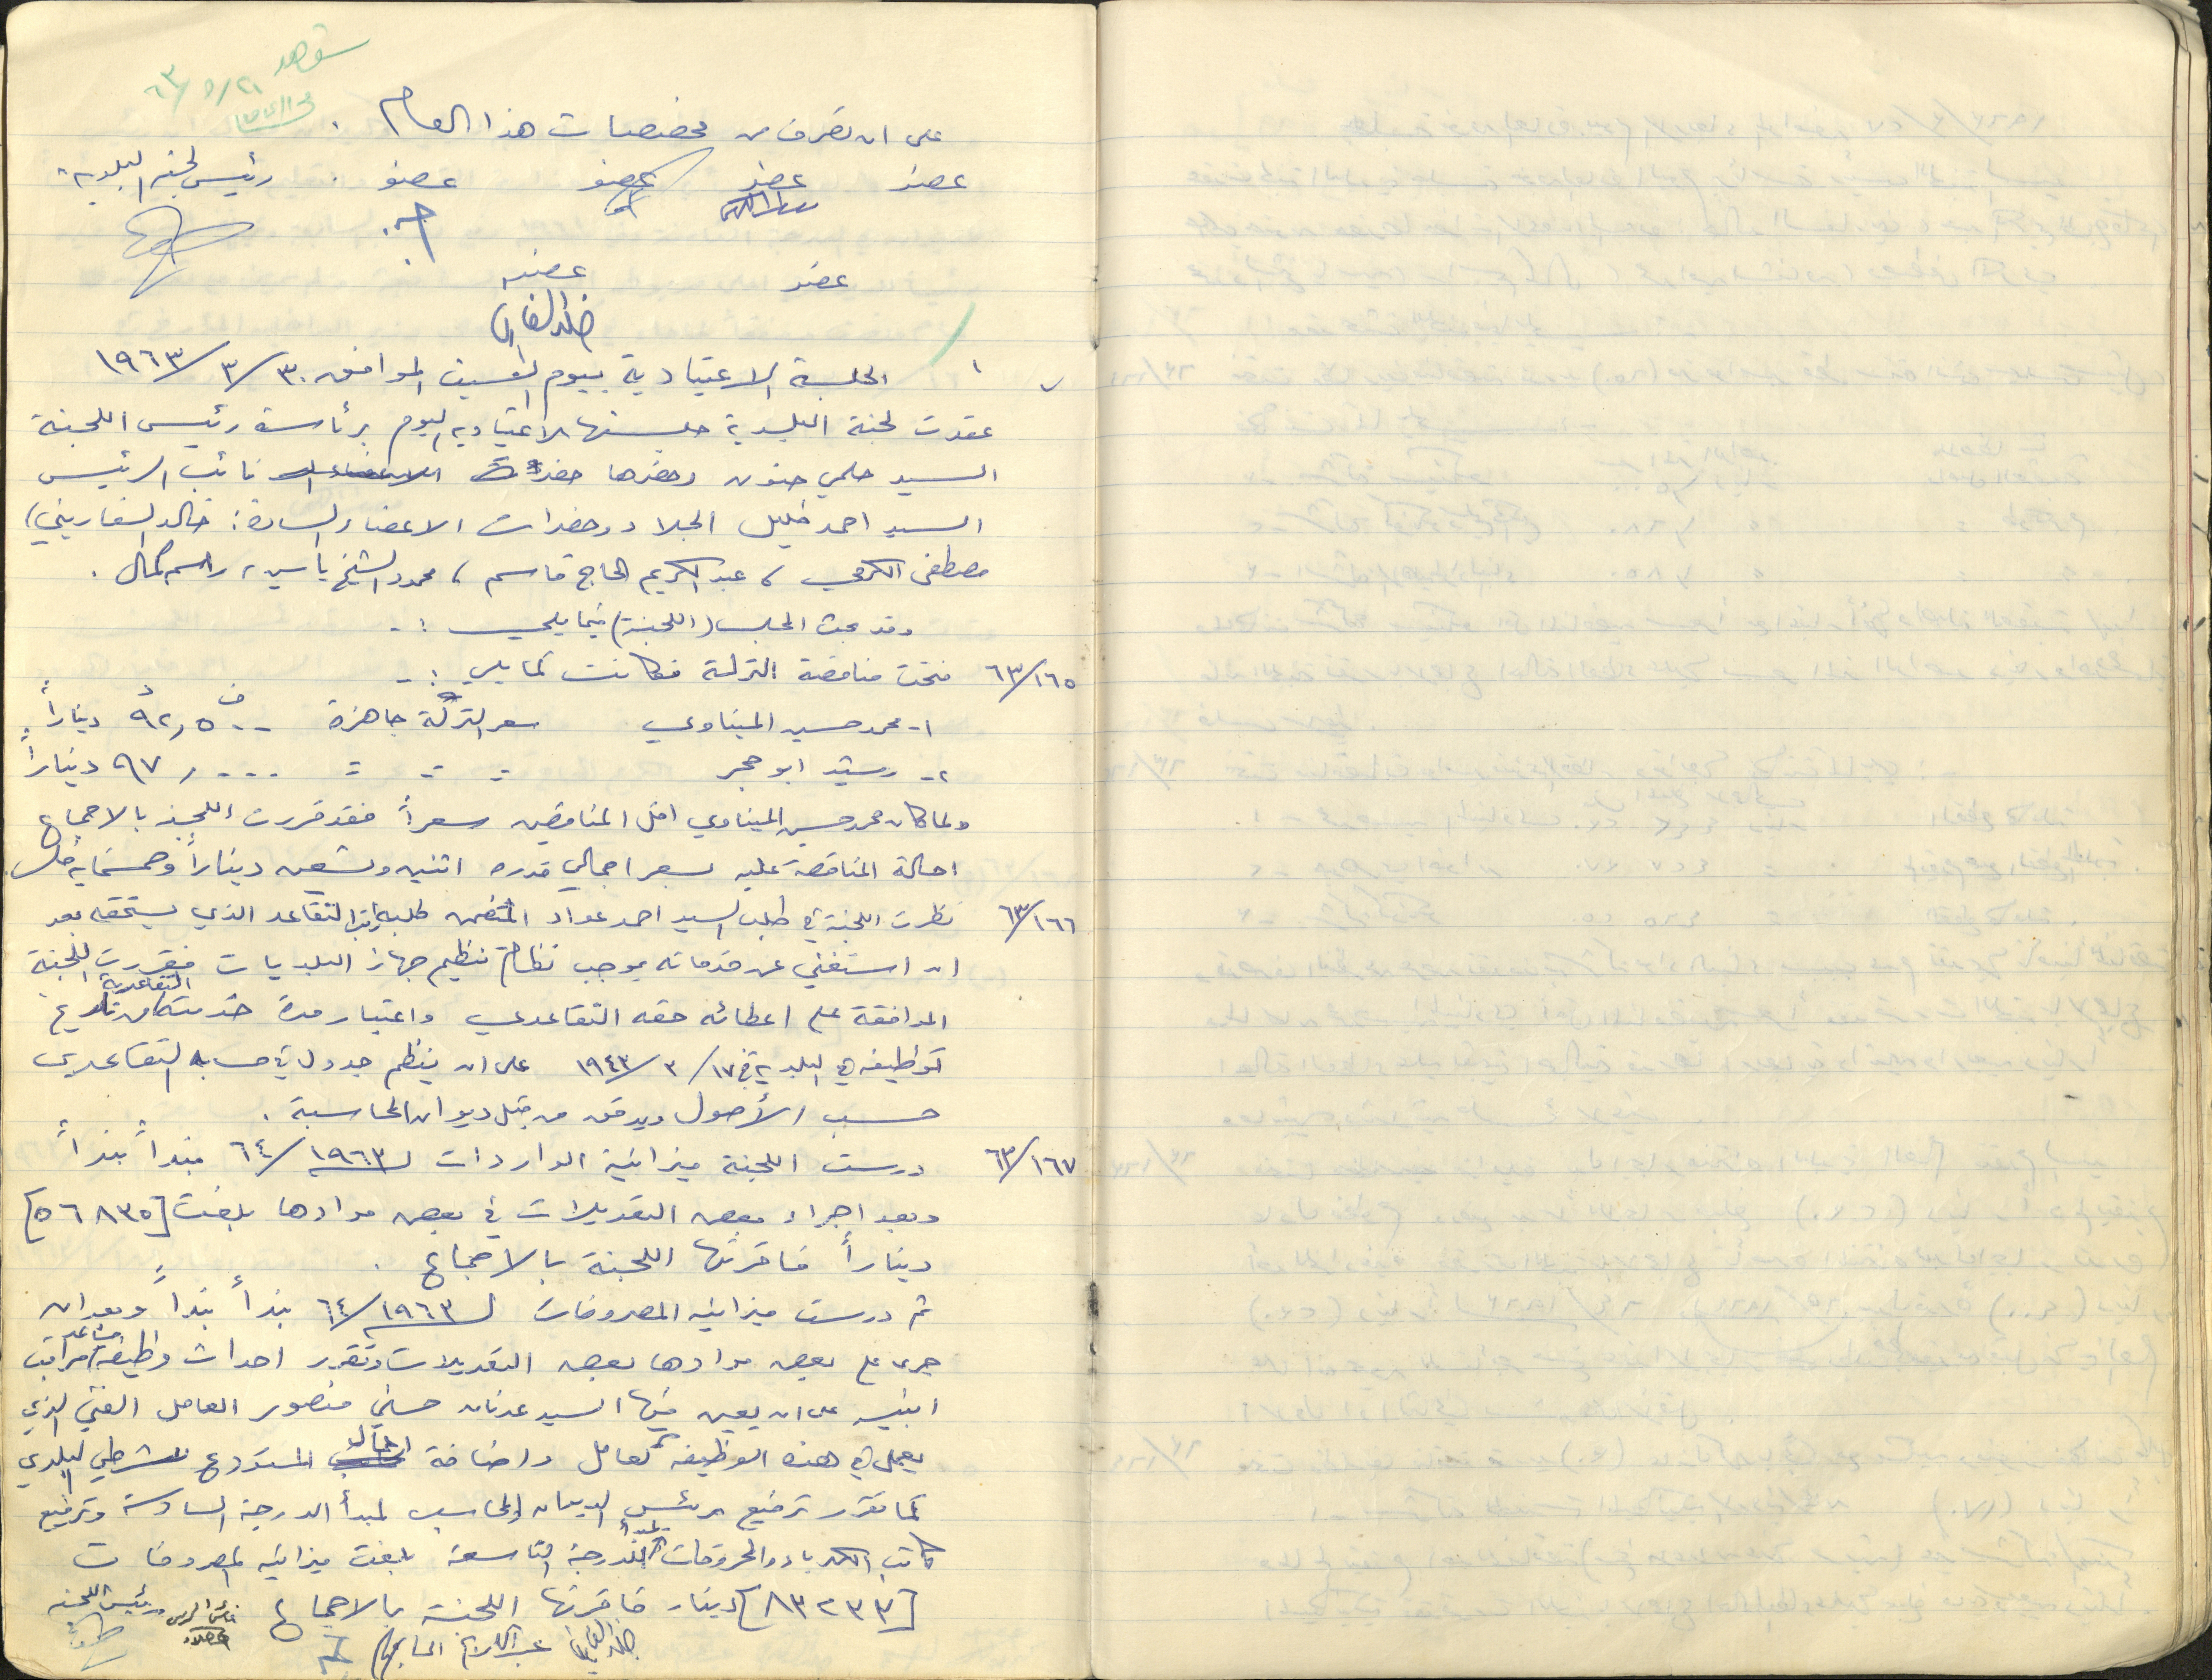 شوهد
٦٣/٥/٢١
على ان تصرف من مخصصات هذا العام .
عضو عضو عضو عضو . رئيس لجنة البلدية
عضو عضو
خالد السفاريني
الجلسة الاعتيادية ليوم السبت الموافق ٣٠/٣/١٩٦٣
عقدت لجنة البلدية جلستها الاعتيادية اليوم برئاسة رئيس اللجنة
السيد حلمي حنون وحضرها حضرة نائب الرئيس
السيد احمد خليل الجلاد وحضرات الاعضاء السادة : خالد السفاريني ،
مصطفى الكرمي ، عبد الكريم الحاج قاسم ، محمود الشيخ ياسين ، راسم كمال .
وقد بحث المجلس (اللجنة) فيما يلي :-
٦٣/١٦٥ فتحت مناقصة التركة فكانت كما يلي :-
١- محمد حسين الميناوي سعر التركة جاهزة ٩٢,٥٠٠ ديناراً .
٢- رشيد ابو حجر = = = ٩٧,٠٠٠ ديناراً
ولما كان محمد حسين الميناوي اقل المناقصين سعراً فقد قررت اللجنة بالاجماع
احالة المناقصة عليه بسعر اجمالي قدره اثنين وتسعين ديناراً وخمسماية فلس .
٦٣/١٦٦ نظرت اللجنة في طلب السيد احمد عواد المتضمن طلبه راتب التقاعد الذي يستحقه بعد
ان استغني عن خدماته بموجب نظام تنظيم جهاز البلديات فقررت اللجنة
الموافقة على اعطائه حقه التقاعدي واعتبار مدة خدمته التقاعدية من تاريخ
توظيفه في البلدية في ١٧/٣/١٩٤٣ على ان ينظم جدول في حسابه التقاعدي
حسب الأصول ويدقق من قبل ديوان المحاسبة .
٦٣/١٦٧ درست اللجنة ميزانية الواردات لـ ١٩٦٣/٦٤ بنداً بنداً
وبعد اجراء بعض التعديلات في بعض موادها بلغت [٥٦٨٣٥]
ديناراً فاقرتها اللجنة بالاجماع .
ثم درست ميزانية المصروفات لـ ١٩٦٣/٦٤ بنداً بنداً وبعد ان
جرى على بعض موادها بعض التعديلات وتقرر احداث وظيفة مساعد مراقب
ابنية على ان يعين فيها السيد عدنان حسني منصور العامل الفني الذي
يعمل في هذه الوظيفة كعامل واضافة اعمال المستودع لشرطي البلدي
كما تقرر ترفيع رئيس الديوان والمحاسب لمبدأ الدرجة السادسة وترفيع
كاتب الكهرباء والمحروقات لمبدأ الدرجة التاسعة بلغت ميزانية المصروفات
[٨٣٢٣٣] دينار فاقرتها اللجنة بالاجماع نائب الرئيس رئيس اللجنة
خالد السفاريني عبد الكريم الحاج قاسم